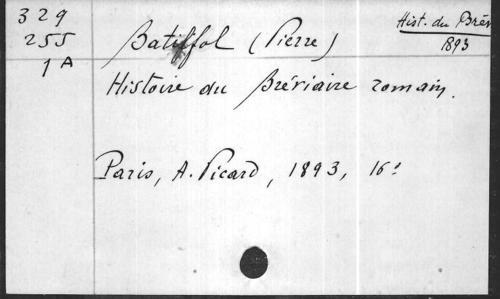 329
255
1A
Hist. du Brév
1893
Batiffol (Pierre)
Histoire du Bréviaire romain.
Paris, A. Picard, 1893, 16º